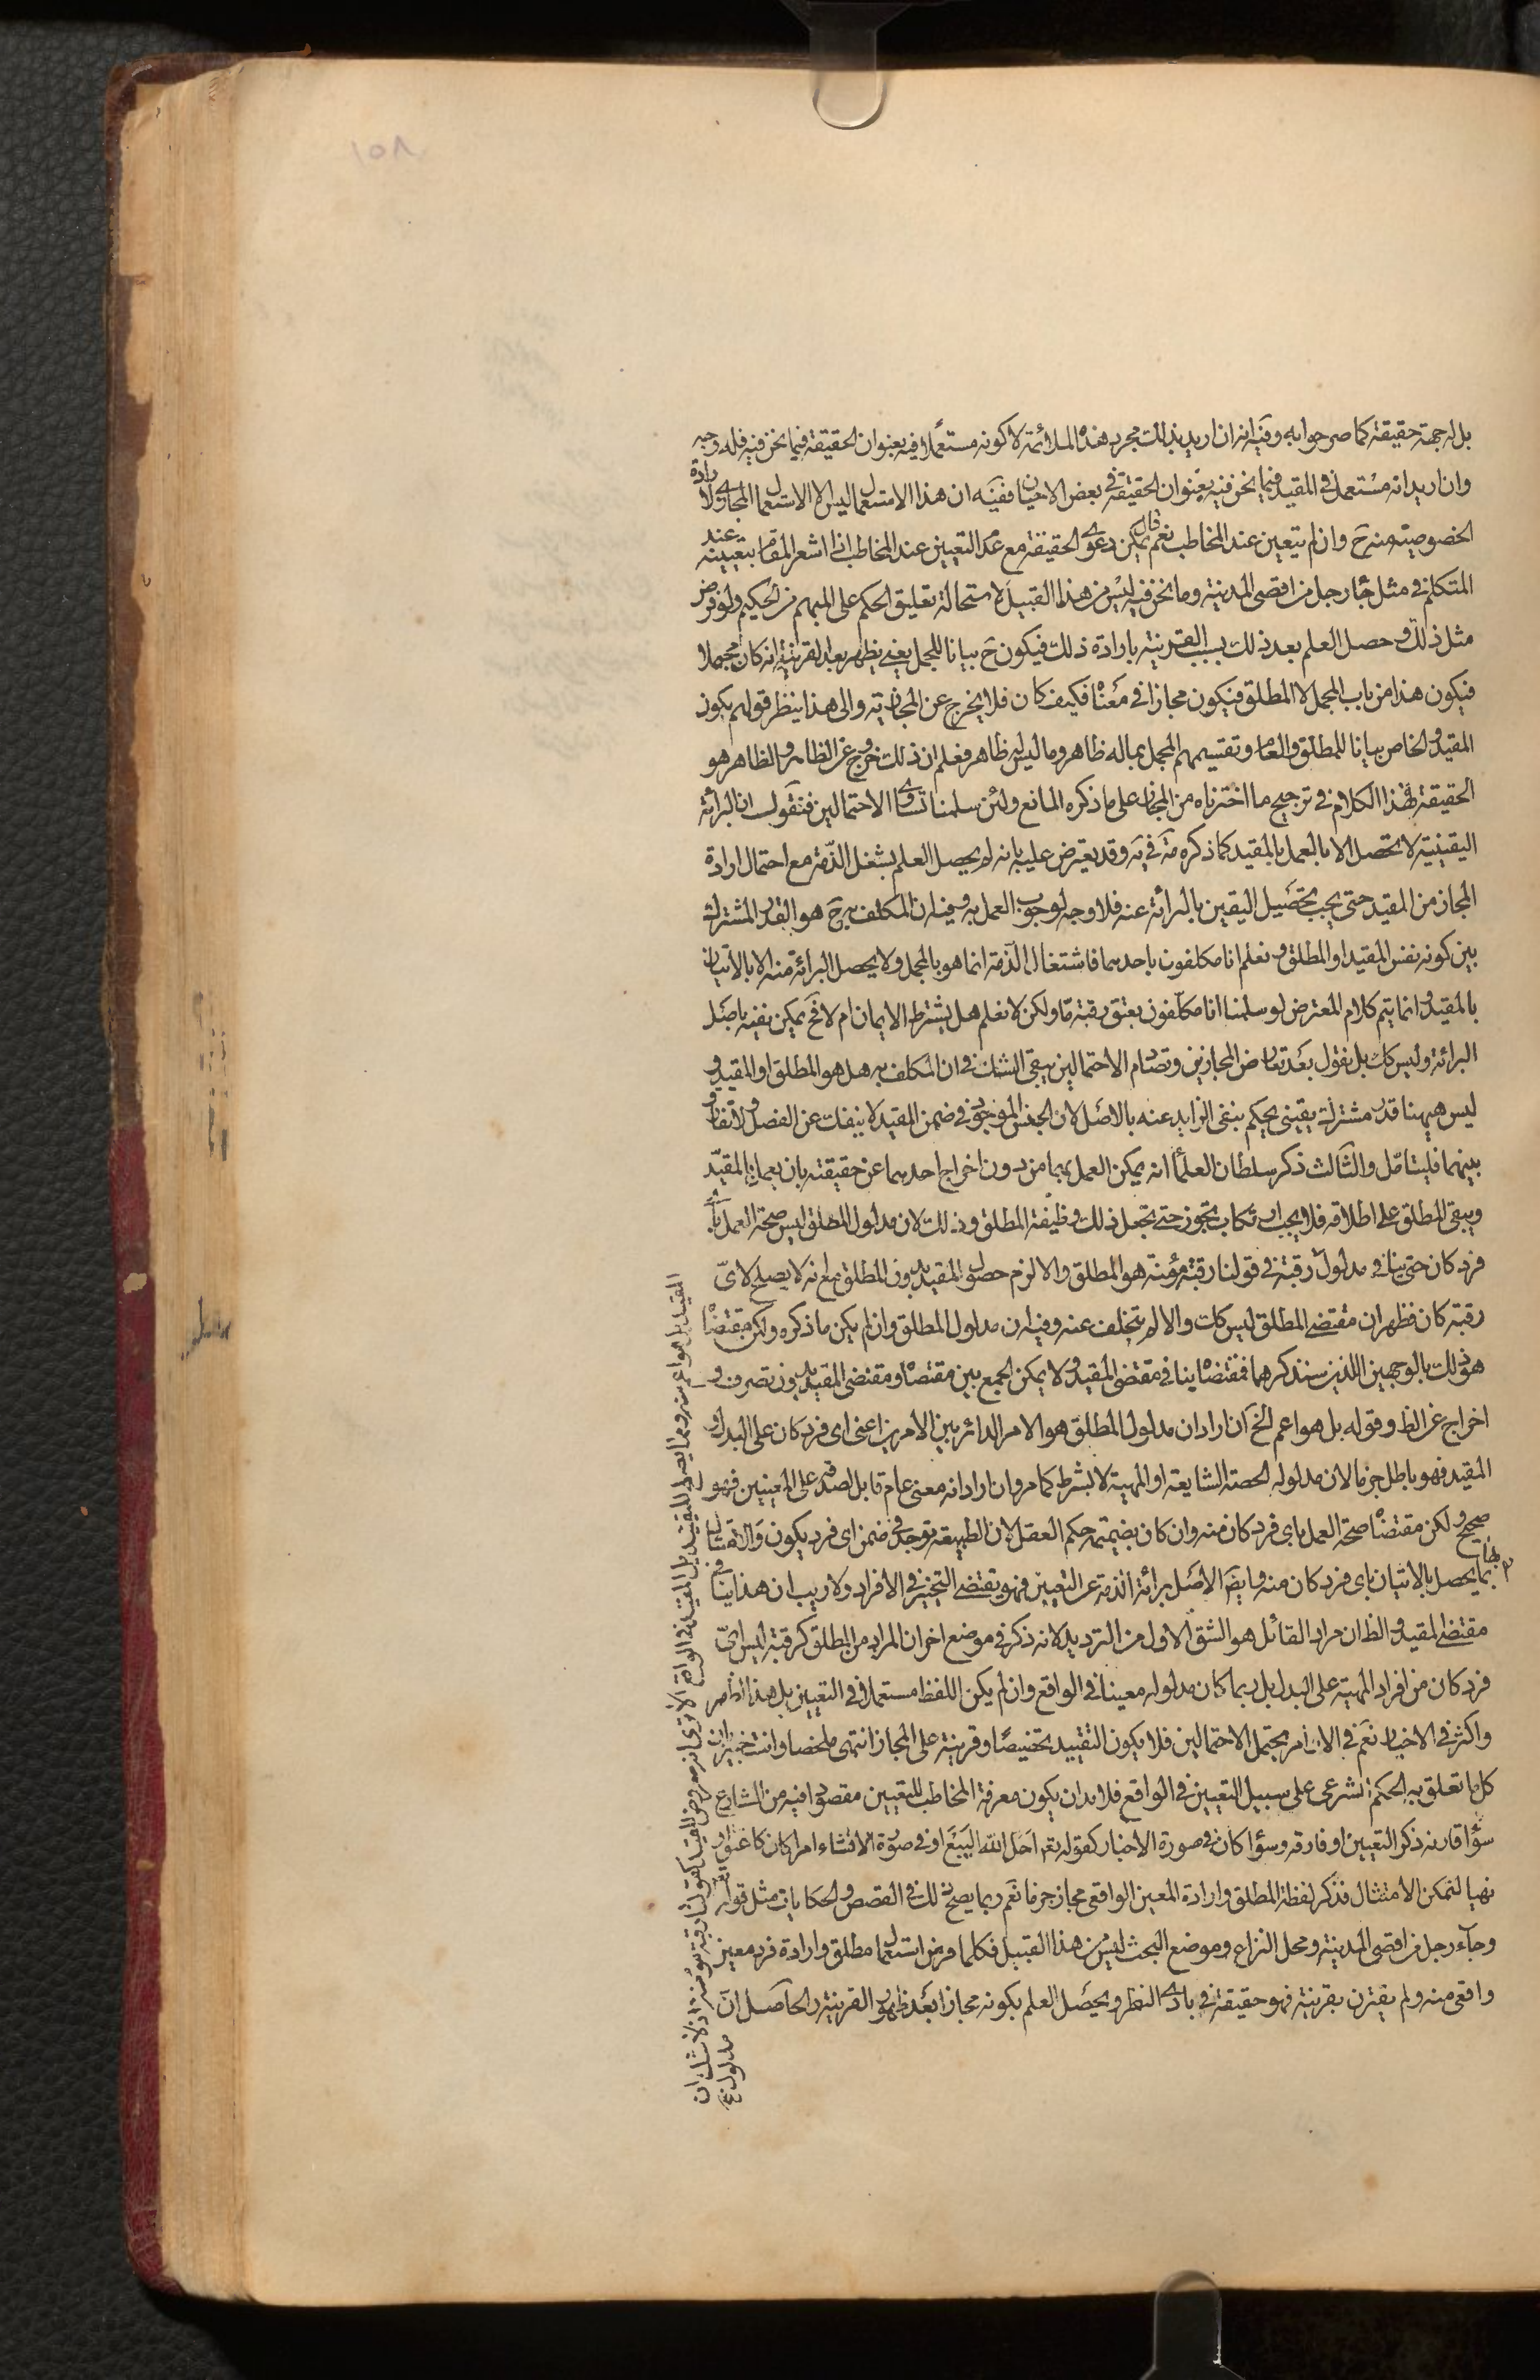 ١٥٨
بل له جهة حقيقة كما صرحوا به وفيه انه ان اريد بذلك مجرد هذه الملائمة لا كونه مستعملا فيه بعنوان الحقيقة فيما نحن فيه فله وجه
وان اريد انه مستعمل في المقيد فيما نحن فيه بعنوان الحقيقة في بعض الاحيان ففيه ان هذا الاستعمال ليس الا الاستعمال المجازي لارادة
الخصوصية منه ح وان لم يتعين عند المخاطب نعم يمكن دعوى الحقيقة مع عدم التعيين عند المخاطب اذا اشعر المقام بتعيينه عند
المتكلم في مثل جاء رجل من اقصى المدينة وما نحن فيه ليس من هذا القبيل لاستحالة تعليق الحكم على المبهم من الحكيم ولو فرض
مثل ذلك وحصل العلم بعد ذلك بسبب القرينة بارادة ذلك فيكون ح بيانا للمجمل يعني يظهر بعد القرينة انه كان مجملا
فيكون هذا من باب المجمل لا المطلق فيكون مجازا في معناه فكيف كان فلا يخرج عن المجازية والى هذا ينظر قولهم يكون
المقيد والخاص بيانا للمطلق والعام وتقسيمهم المجمل بما له ظاهر وما ليس له ظاهر فعلم ان ذلك خروج عن الظاهر والظاهر هو
الحقيقة فهذا الكلام في ترجيح ما اخترناه من المجاز على ما ذكره المانع ولئن سلمنا تساوى الاحتمالين فنقول ان البرائة
اليقينية لا تحصل الا بالعمل بالمقيد كما ذكره مه في يه وقد يعترض عليه بانه لم يحصل العلم بشغل الذمة مع احتمال ارادة
المجاز من المقيد حتى يجب تحصيل اليقين بالبرائة عنه فلا وجه لوجوب العمل به وفيه ان المكلف به ح هو القدر المشترك
بين كونه نفس المقيد او المطلق ونعلم انا مكلفون باحدهما فاشتغال الذمة انما هو بالمجمل ولا يحصل البرائة منه الا بالاتيان
بالمقيد وانما يتم كلام المعترض لو سلمنا انا مكلفون بعتق رقبة ما ولكن لا نعلم هل يشترط الايمان ام لا فح يمكن نفيه باصل
البرائة وليس كك بل نقول بعد تعارض المجازين وتصادم الاحتمالين يبقى الشك في ان المكلف به هل هو المطلق او المقيد و
ليس هيهنا قدر مشترك يقيني يحكم بنفي الزايد عنه بالاصل لان الجنس الموجود في ضمن المقيد لا ينفك عن الفصل ولا تفارق
بينهما فليتامل والثالث ذكر سلطان العلماء انه يمكن العمل بهما من دون اخراج احدهما عن حقيقته بان يعمل بالمقيد
ويبقى المطلق على اطلاقه فلا يجب ارتكاب تجوز حتى تجعل ذلك وظيفة المطلق وذلك لان مدلول المطلق ليس صحة العمل باي
فرد كان حتى ينافي مدلول رقبة في قولنا رقبة مؤمنة هو المطلق والا لزم حصول المقيد بدون المطلق مع انه لا يصلح لاي
رقبة كان فظهر ان مقتضى المطلق ليس كك والا لم يتخلف عنه وفيه ان مدلول المطلق وان لم يكن ما ذكره ولكن مقتضاه
هو ذلك بالوجهين اللذين سنذكرهما فمقتضاه ينافي مقتضى المقيد ولا يمكن الجمع بين مقتضاه ومقتضى المقيد بدون تصرف و
اخراج عن الظ وقوله بل هو اعم الخ ان اراد ان مدلول المطلق هو الامر الدائر بين الامرين اعني اي فرد كان على البدل او
المقيد فهو باطل جزما لان مدلوله الحصة الشايعة او المهية لا بشرط كما مر وان اراد انه معنى عام قابل لصدقه على المعينين فهو
صحيح ولكن مقتضاه صحة العمل باي فرد كان منه وان كان بضميمة حكم العقل لان الطبيعة توجد في ضمن اي فرد يكون والامتثال
بها يحصل بالاتيان باي فرد كان منه وايضا الاصل برائة الذمة عن التعيين فهو يقتضي التخيير في الافراد ولا ريب ان هذا ينافي
مقتضى المقيد والظ ان مراد القائل هو الشق الاول من الترديد لانه ذكر في موضع اخر ان المراد من المطلق كرقبة ليس اي
فرد كان من افراد المهية على البدل بل ربما كان مدلوله معينا في الواقع وان لم يكن اللفظ مستعملا في التعيين بل هذا ظاهر
واكثر في الاخبار نعم في الاوامر يحتمل الاحتمالين فلا يكون التقييد تخصيصا وقرينة على المجاز انتهى ملخصا وانت خبير بان
كل ما تعلق به الحكم الشرعي على سبيل التعيين في الواقع فلا بد ان يكون معرفة المخاطب للتعيين مقصودا فيه من الشارع
سواء قارنه ذكر التعيين او فارقه وسواء كان في صورة الاخبار كقوله تعم احل الله البيع او في صورة الانشاء امرا كان كاعتق او
نهيا لتمكن الامتثال فذكر لفظة المطلق وارادة المعين الواقعي مجاز جزما نعم ربما يصح ذلك في القصص والحكايات مثل قوله تعم
وجاء رجل من اقصى المدينة ومحل النزاع وموضع البحث ليس من هذا القبيل فكلما فرض استعمال مطلق وارادة فرد معين
واقعي منه ولم يقترن بقرينة فهو حقيقة في بادى النظر ويحصل العلم بكونه مجازا بعد ظهور القرينة والحاصل ان
المقيد بل هو اعم منه ومما يصلح للتقييد بل المقيد في الواقع الا ترى انه معروض للقيد كقولنا رقبة مؤمنة اذ لا شك ان
مدلول